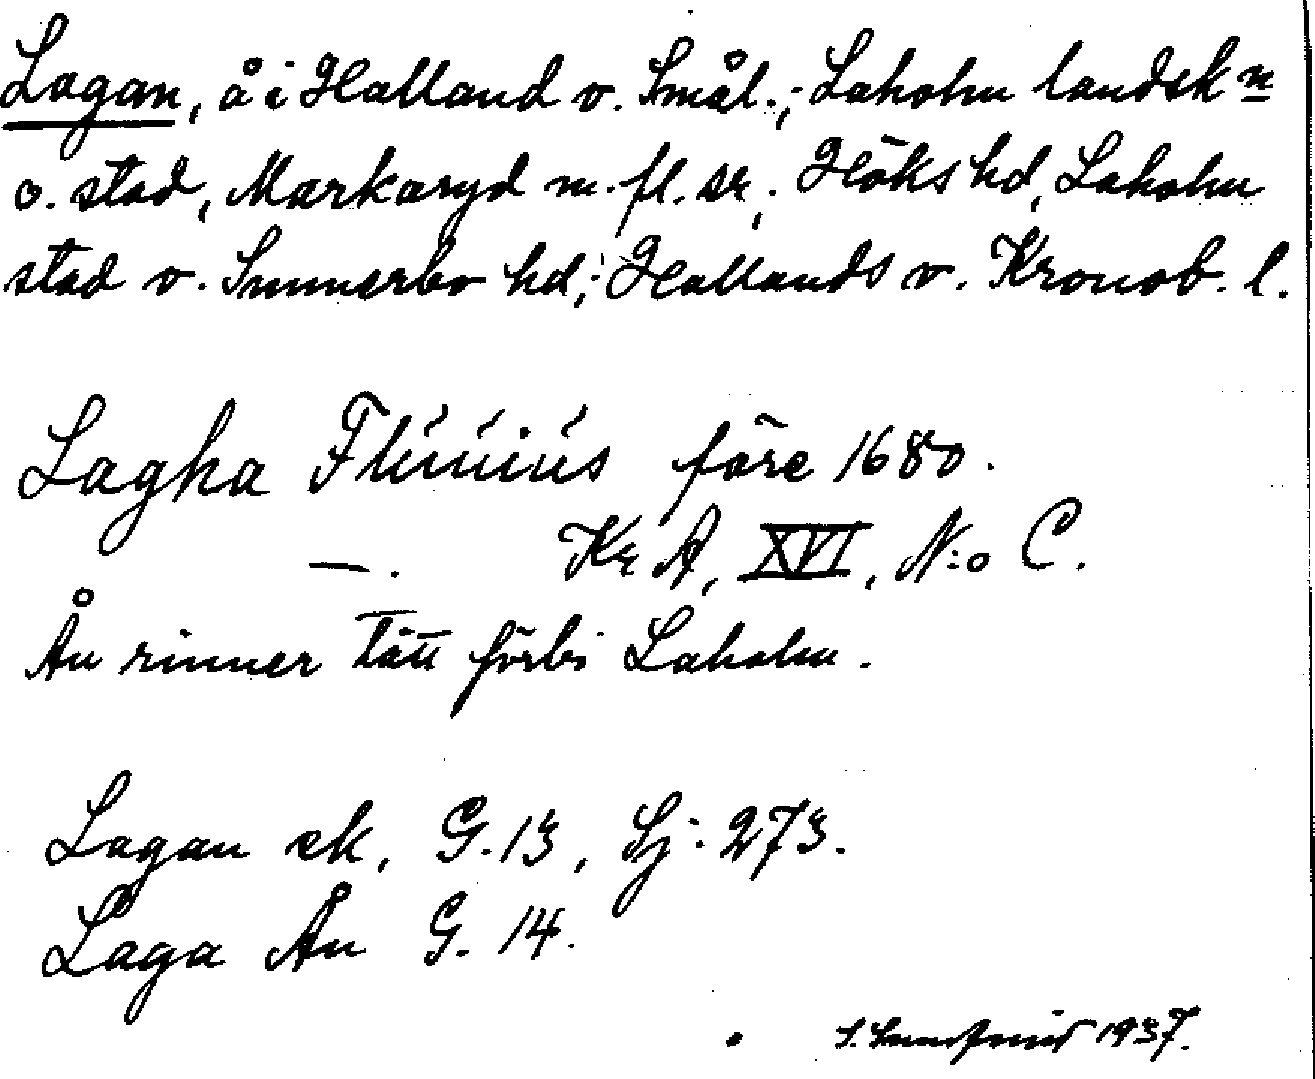 Lagan, å i Halland o. Smål.; Laholm landsk n
o. stad, Markaryd m. fl. sr, Höks hd, Laholm
stad o. Sunnerbo hd; Hallands o. Kronob. l.
Lagha Flúúiús före 1680.
—. Kr A, XVI, N:o C.
Ån rinner tätt förbi Laholm.
Lagan ek, G. 13, Sj: 273.
Laga Ån G. 14.
1937.